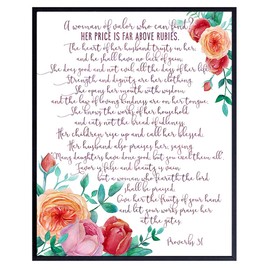 A woman of valor who can find?
HER PRICE IS FAR ABOVE RUBIES.
The heart of her husband trusts in her,
and he shall have no lack of gain.
She does good and not evil all the days of her life.
Strength and dignity are her clothing.
She opens her mouth with wisdom
and the law of loving kindness are on her tongue.
She knows the works of her household,
and eats not the bread of idleness.
Her children rise up and call her blessed.
Her husband also praises her, saying:
"Many daughters have done good, but you excel them all.
Favor is false and beauty is vain
but a woman who feareth the lord
shall be praised.
Give her the fruits of your hand
and let your works praise her
at the gates.
Proverbs 31